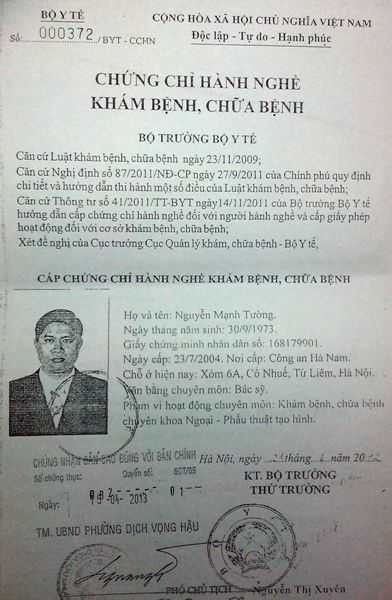 BỘ Y TẾ
CỘNG HÒA XÃ HỘI CHỦ NGHĨA VIỆT NAM
Số: 000372 /BYT - CCHN
Độc lập - Tự do - Hạnh phúc
CHỨNG CHỈ HÀNH NGHỀ
KHÁM BỆNH, CHỮA BỆNH
BỘ TRƯỞNG BỘ Y TẾ
Căn cứ Luật khám bệnh, chữa bệnh ngày 23/11/2009;
Căn cứ Nghị định số 87/2011/NĐ-CP ngày 27/9/2011 của Chính phủ quy định
chi tiết và hướng dẫn thi hành một số điều của Luật khám bệnh, chữa bệnh;
Căn cứ Thông tư số 41/2011/TT-BYT ngày14/11/2011 của Bộ trưởng Bộ Y tế
hướng dẫn cấp chứng chỉ hành nghề đối với người hành nghề và cấp giấy phép
hoạt động đối với cơ sở khám bệnh, chữa bệnh;
Xét đề nghị của Cục trưởng Cục Quản lý khám, chữa bệnh - Bộ Y tế,
CẤP CHỨNG CHỈ HÀNH NGHỀ KHÁM BỆNH, CHỮA BỆNH
Họ và tên: Nguyễn Mạnh Tường.
Ngày tháng năm sinh: 30/9/1973.
Giấy chứng minh nhân dân số: 168179901.
Ngày cấp: 23/7/2004. Nơi cấp: Công an Hà Nam.
Chỗ ở hiện nay: Xóm 6A, Cổ Nhuế, Từ Liêm, Hà Nội.
Văn bằng chuyên môn: Bác sỹ.
Phạm vi hoạt động chuyên môn: Khám bệnh, chữa bệnh
chuyên khoa Ngoại - Phẫu thuật tạo hình.
CHỨNG NHẬN BẢN SAO ĐÚNG VỚI BẢN CHÍNH
Hà Nội, ngày tháng năm 2012
Số chứng thực: Quyển số: SCT/BS
KT. BỘ TRƯỞNG
THỨ TRƯỞNG
Ngày: -04- 2013 01
TM. UBND PHƯỜNG DỊCH VỌNG HẬU
PHÓ CHỦ TỊCH
Nguyễn Thị Xuyên